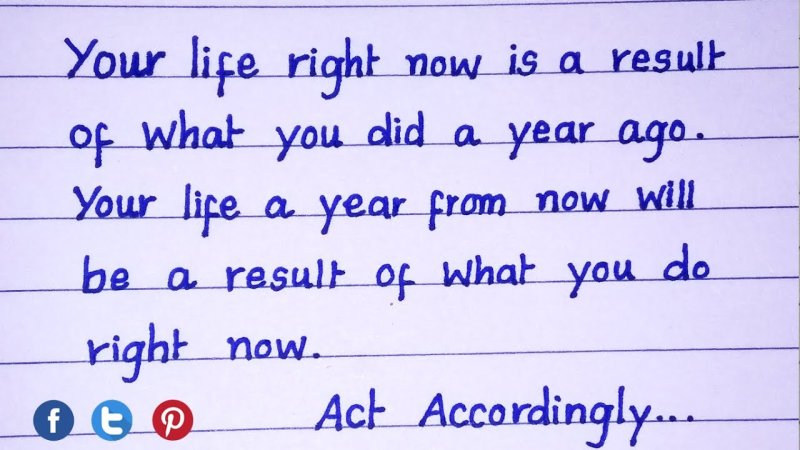 Your life right now is a result
of what you did a year ago.
Your life a year from now will
be a result of what you do
right now.
Act Accordingly...